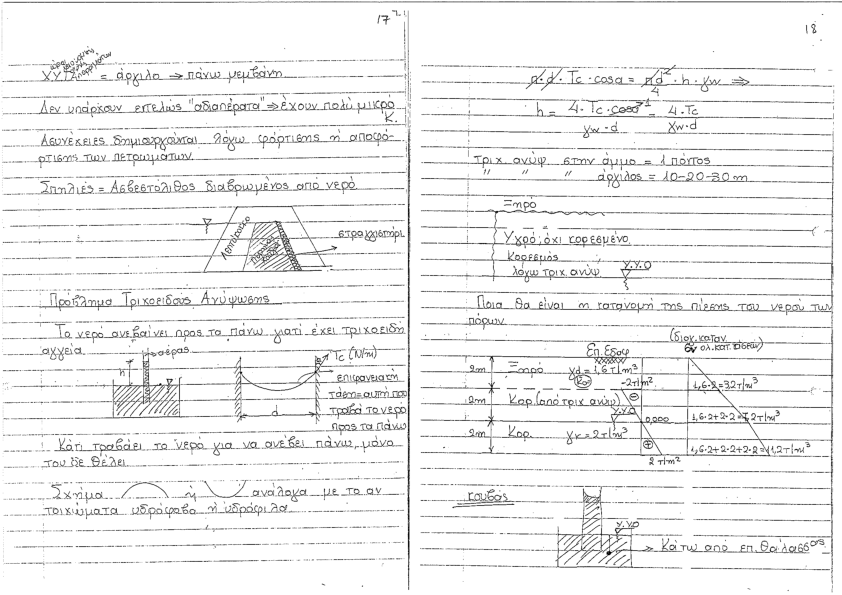 17
Χ.Υ.Τ.Α. = άργιλο => πάνω μεμβάνη
Δεν υπάρχουν εντελώς "αδιαπέρατα" => έχουν πολύ μικρό
K.
Ασυνέχειες δημιουργούνται λόγω φόρτισης ή αποφό-
ρτισης των πετρωμάτων.
Σπηλιές = Ασβεστόλιθος διαβρωμένος από νερό
στραγγιστήρι
Πρόβλημα Τριχοειδούς Ανύψωσης
Το νερό ανεβαίνει προς το πάνω γιατί έχει τριχοειδή
αγγεία.
αέρας
h
Tc (N/m)
επιφανειακή
τάση = αυτή που
τραβά το νερό
προς τα πάνω
d
Κάτι τραβάει το νερό για να ανέβει πάνω, μόνο
του δε θέλει
Σχήμα ή ανάλογα με το αν
τοιχώματα υδρόφοβα ή υδρόφιλα
18
π·d·Tc·cosα = πd²/4 · h · γw =>
h = 4·Tc·cosα¹/γw·d = 4·Tc/γw·d
Τριχ. ανύψ. στην άμμο = 1 πόντος
" " " άργιλος = 10-20-30 m
Ξηρό
Υγρό, όχι κορεσμένο
Κορεσμός
λόγω τριχ. ανύψ. Υ.Υ.Ο
Ποια θα είναι η κατανομή της πίεσης του νερού των
πόρων
(διαγ. καταν
ολ. κατ. τάσεων)
Επ. Εδαφ
2m Ξηρό γd = 1,6 T/m³
-2T/m² 1,6·2=3,2T/m³
2m Κορ. (από τριχ. ανύψ)
Υ.Υ.Ο 0,000 1,6·2+2·2=7,2T/m³
2m Κορ. γκ = 2T/m³
2T/m² 1,6·2+2·2+2·2=11,2T/m³
κουβάς
Υ.Υ.Ο
Κάτω από επ. θάλασσας